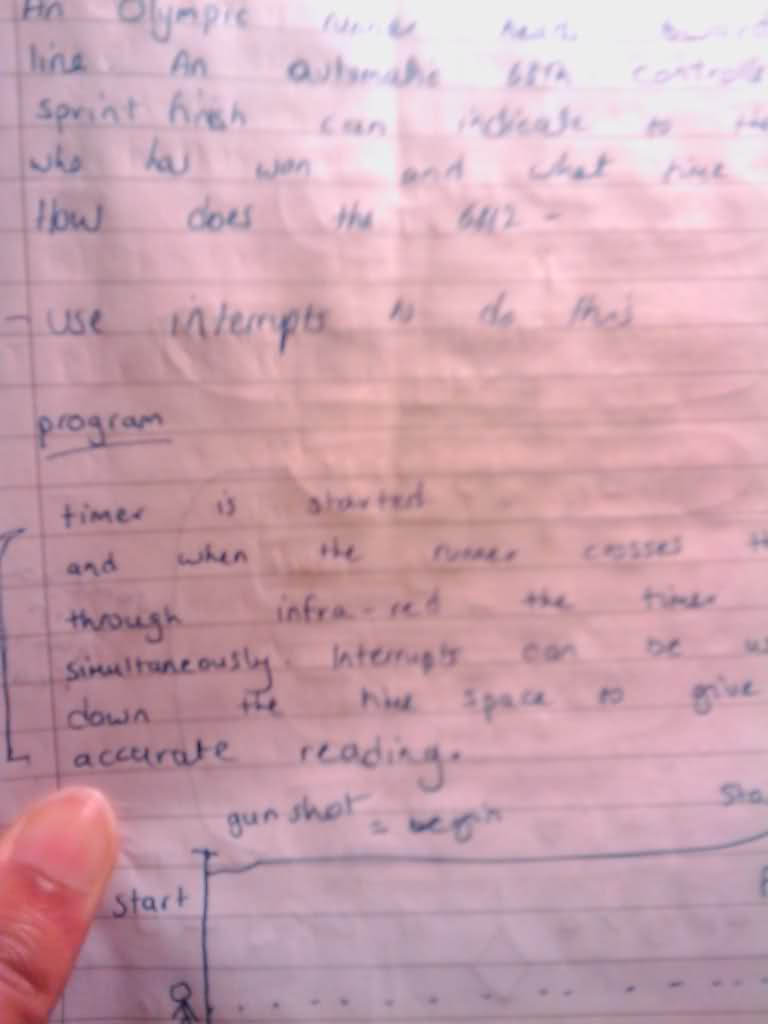 An Olympic runner heads toward
line An automatic controlle
sprint finish can indicate to the
who has won and what time
How does the 6812 -
- use interrupts to do this
program
timer is started
and when the runner crosses th
through infra-red the timer
simultaneously. Interrupts can be us
down the time space to give
accurate reading.
gun shot = begin
Sta
start